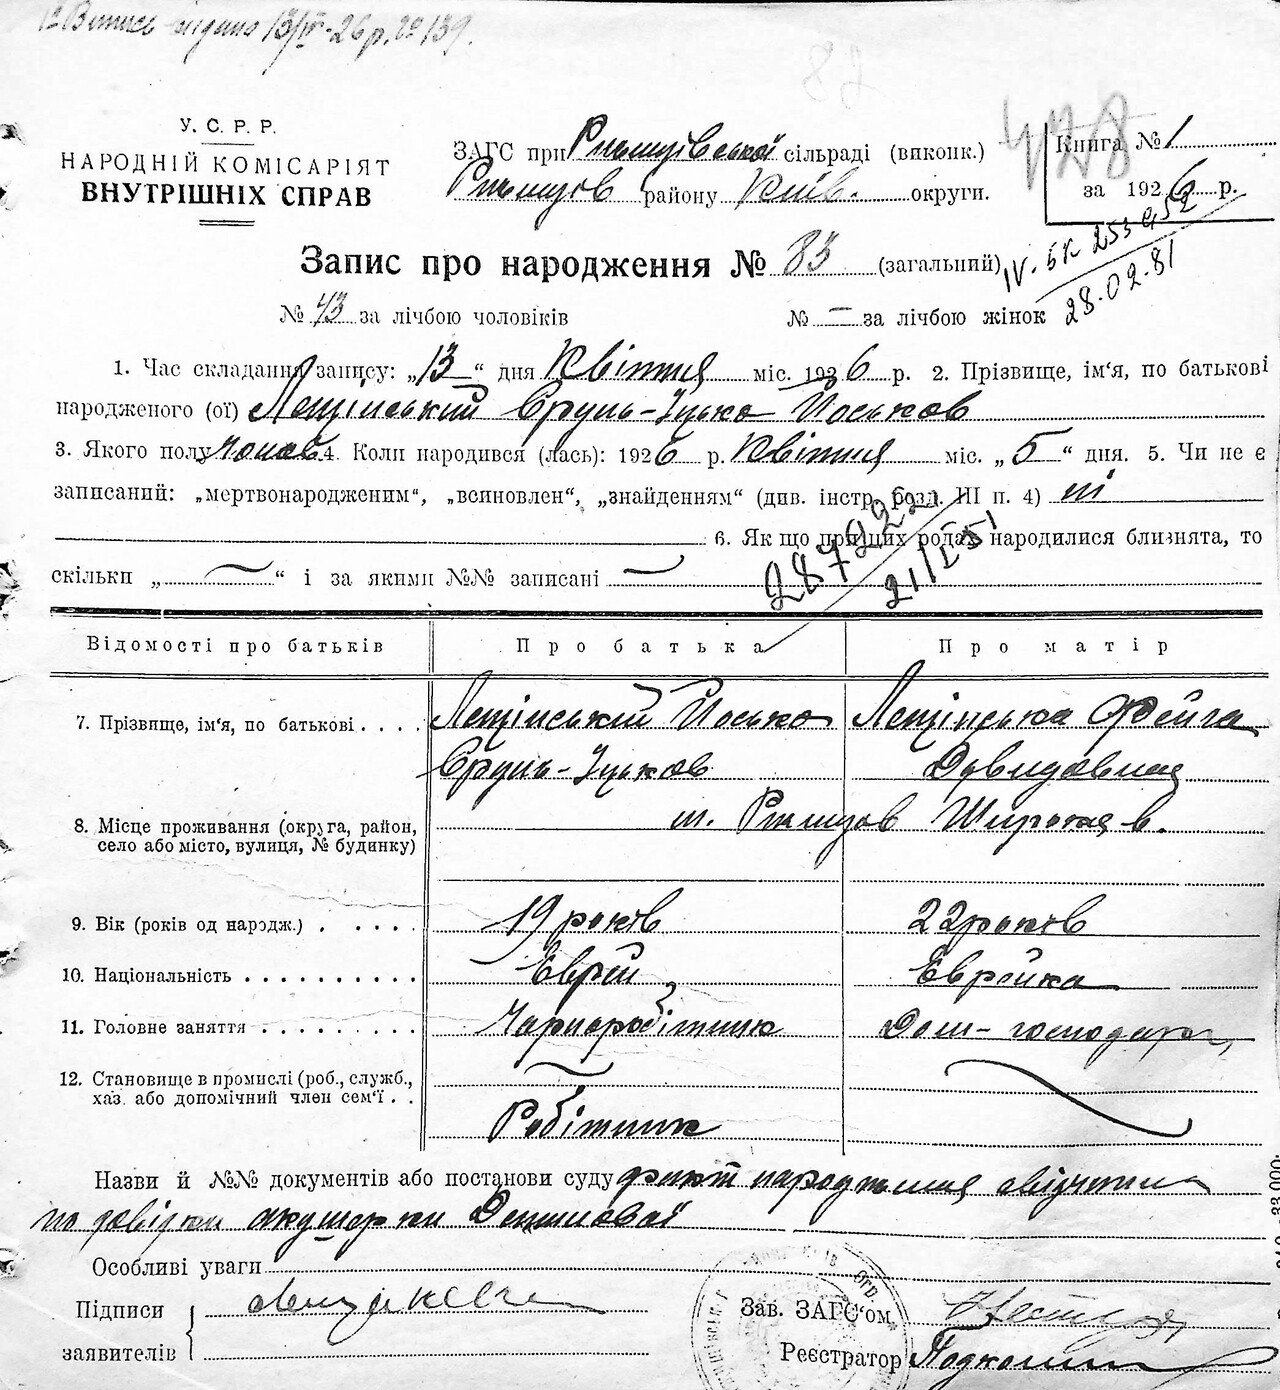 Випись видано 13/IV-26р. № 139.
82
428
У. С. Р. Р.
НАРОДНІЙ КОМІСАРІЯТ
ВНУТРІШНІХ СПРАВ
ЗАГС при Ржищівської сільраді (виконк.)
Ржищов району Київ. округи.
Книга № 1
за 1926 р.
Запис про народження № 83 (загальний)
IV-БК 253952
28.02.81
№ 43 за лічбою чоловіків № — за лічбою жінок
1. Час складання запису: „13“ дня Квітня міс. 1926 р. 2. Прізвище, ім'я, по батькові
народженого (ої) Лещінський Сруль-Іцько Йоськов
3. Якого полу чолов. 4. Коли народився (лась): 1926 р. Квітня міс. „5“ дня. 5. Чи не є
записаний: „мертвонародженим“, „всиновлен“, „знайденням“ (див. інстр. розд. III п. 4) ні
6. Як що при цих родах народилися близнята, то
скільки „ “ і за якими №№ записані
287922
21/I 51
Відомості про батьків Про батька Про матір
7. Прізвище, ім'я, по батькові . . . . Лещінський Йосько Лещінська Фейга
Сруль-Іцьков Давидовна
8. Місце проживання (округа, район,
село або місто, вулиця, № будинку) м. Ржищов Широка в.
9. Вік (років од народж.) . . . . . 19 років 22 років
10. Національність . . . . . . . . . . Еврей Еврейка
11. Головне заняття . . . . . . . . . Чорноробітник Дом-господарк,
12. Становище в промислі (роб., служб.,
хаз. або допомічний член сем'ї . . Робітник
Назви й №№ документів або постанови суду факт народження свідчить
по довідки акушерки Денисової
Особливі уваги
Підписи
заявителів
Зав. ЗАГС'ом
Реєстратор